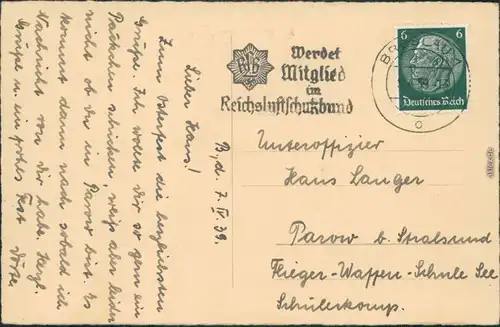 Werdet
Mitglied
im
Reichsluftschutzbund
BRESLAU
6 6
Deutsches Reich
7. IV. 39.
Lieber Hans!
Zum Osterfest die herzlichsten
Grüße. Ich wollte Dir so gern ein
Päckchen schicken, weiß aber leider
nicht ob du in Parow bist. Es
kommt dann nach sobald ich
Nachricht von dir habe. Herzl.
Grüße u. ein frohes Fest
Unteroffizier
Hans Langer
Parow b. Stralsund
Flieger-Waffen-Schule See
Schülerkomp.